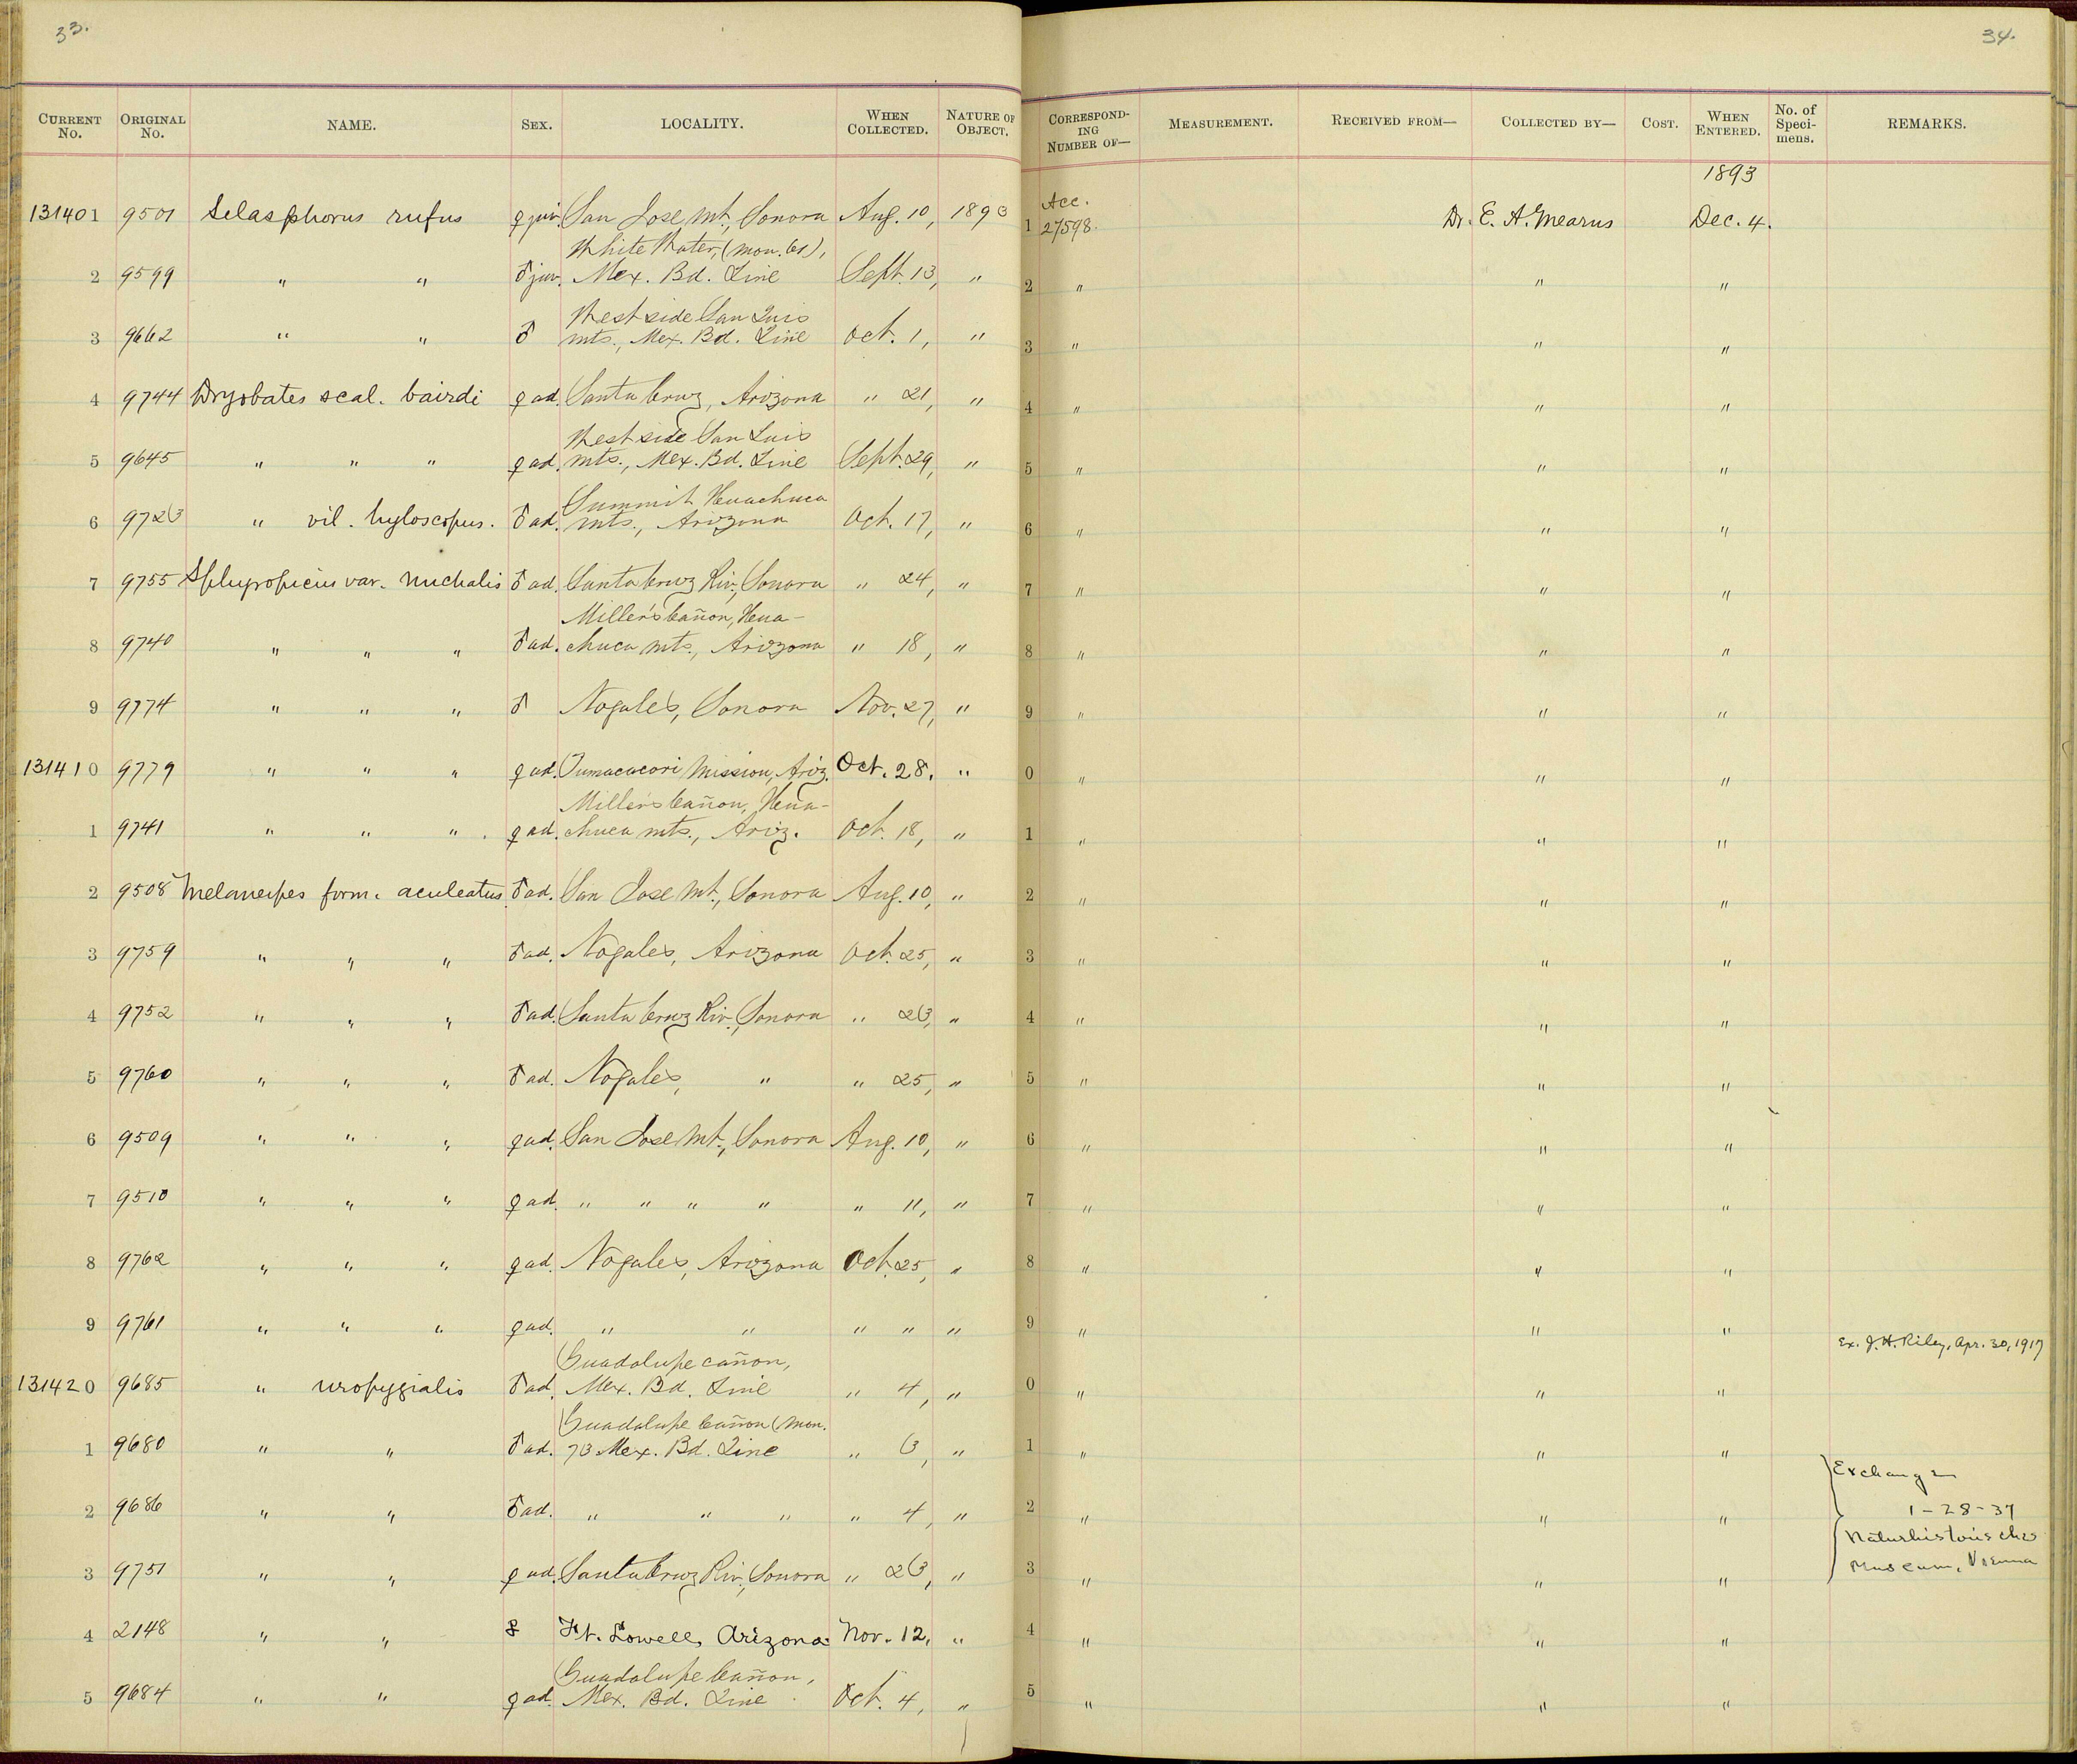 33.
CURRENT No. ORIGINAL No. NAME. SEX. LOCALITY. WHEN COLLECTED. NATURE OF OBJECT.
131401 9501 Selasphorus rufus ♀ juv. San Jose Mt., Sonora Aug. 10, 1893
White Water, (mon. 61),
2 9599 " " ♂ juv. Mex. Bd. Line Sept. 13, "
West side San Luis
3 9662 " " ♂ mts., Mex. Bd. Line Oct. 1, "
4 9744 Dryobates scal. bairdi ♀ ad. Santa Cruz, Arizona " 21, "
West side San Luis
5 9645 " " " ♀ ad. mts., Mex. Bd. Line Sept. 29, "
Summit Huachuca
6 9723 " vil. hyloscopus. ♂ ad. mts., Arizona Oct. 17, "
7 9755 Sphyropicus var. nuchalis ♂ ad. Santa Cruz Riv., Sonora " 24, "
Miller's Cañon, Hua-
8 9740 " " " ♂ ad. chuca mts., Arizona " 18, "
9 9774 " " " ♂ Nogales, Sonora Nov. 27, "
131410 9779 " " " ♀ ad. Tumacacori Mission, Ariz. Oct. 28. "
Miller's Cañon, Hua-
1 9741 " " " ♀ ad. chuca mts., Ariz. Oct. 18, "
2 9508 Melanerpes form. aculeatus ♂ ad. San Jose Mt., Sonora Aug. 10, "
3 9759 " " " ♂ ad. Nogales, Arizona Oct. 25, "
4 9752 " " " ♂ ad. Santa Cruz Riv., Sonora " 23, "
5 9760 " " " ♂ ad. Nogales, " " 25, "
6 9509 " " " ♀ ad. San Jose Mt., Sonora Aug. 10, "
7 9510 " " " ♀ ad. " " " " " 11, "
8 9762 " " " ♀ ad. Nogales, Arizona Oct. 25, "
9 9761 " " " ♀ ad. " " " " "
Guadalupe cañon,
131420 9685 " uropygialis ♂ ad. Mex. Bd. Line " 4, "
Guadalupe Cañon (mon.
1 9680 " " ♂ ad. 73 Mex. Bd. Line " 3, "
2 9686 " " ♂ ad. " " " " 4, "
3 9751 " " ♀ ad. Santa Cruz Riv., Sonora " 23, "
4 2148 " " Ft. Lowell, Arizona Nov. 12, "
Guadalupe Cañon,
5 9684 " " ♀ ad. Mex. Bd. Line Oct. 4, "
34.
CORRESPONDING NUMBER OF— MEASUREMENT. RECEIVED FROM— COLLECTED BY— COST. WHEN ENTERED. No. of Specimens. REMARKS.
1893
Acc.
1 27598. Dr. E. A. Mearns Dec. 4.
2 " " "
3 " " "
4 " " "
5 " " "
6 " " "
7 " " "
8 " " "
9 " " "
0 " " "
1 " " "
2 " " "
3 " " "
4 " " "
5 " " "
6 " " "
7 " " "
8 " " "
9 " " " Ex. J. H. Riley, Apr. 30, 1917
0 " " "
1 " " "
Exchange
2 " " " 1-28-37
Naturhistorisches
3 " " " Museum, Vienna
4 " " "
5 " " "